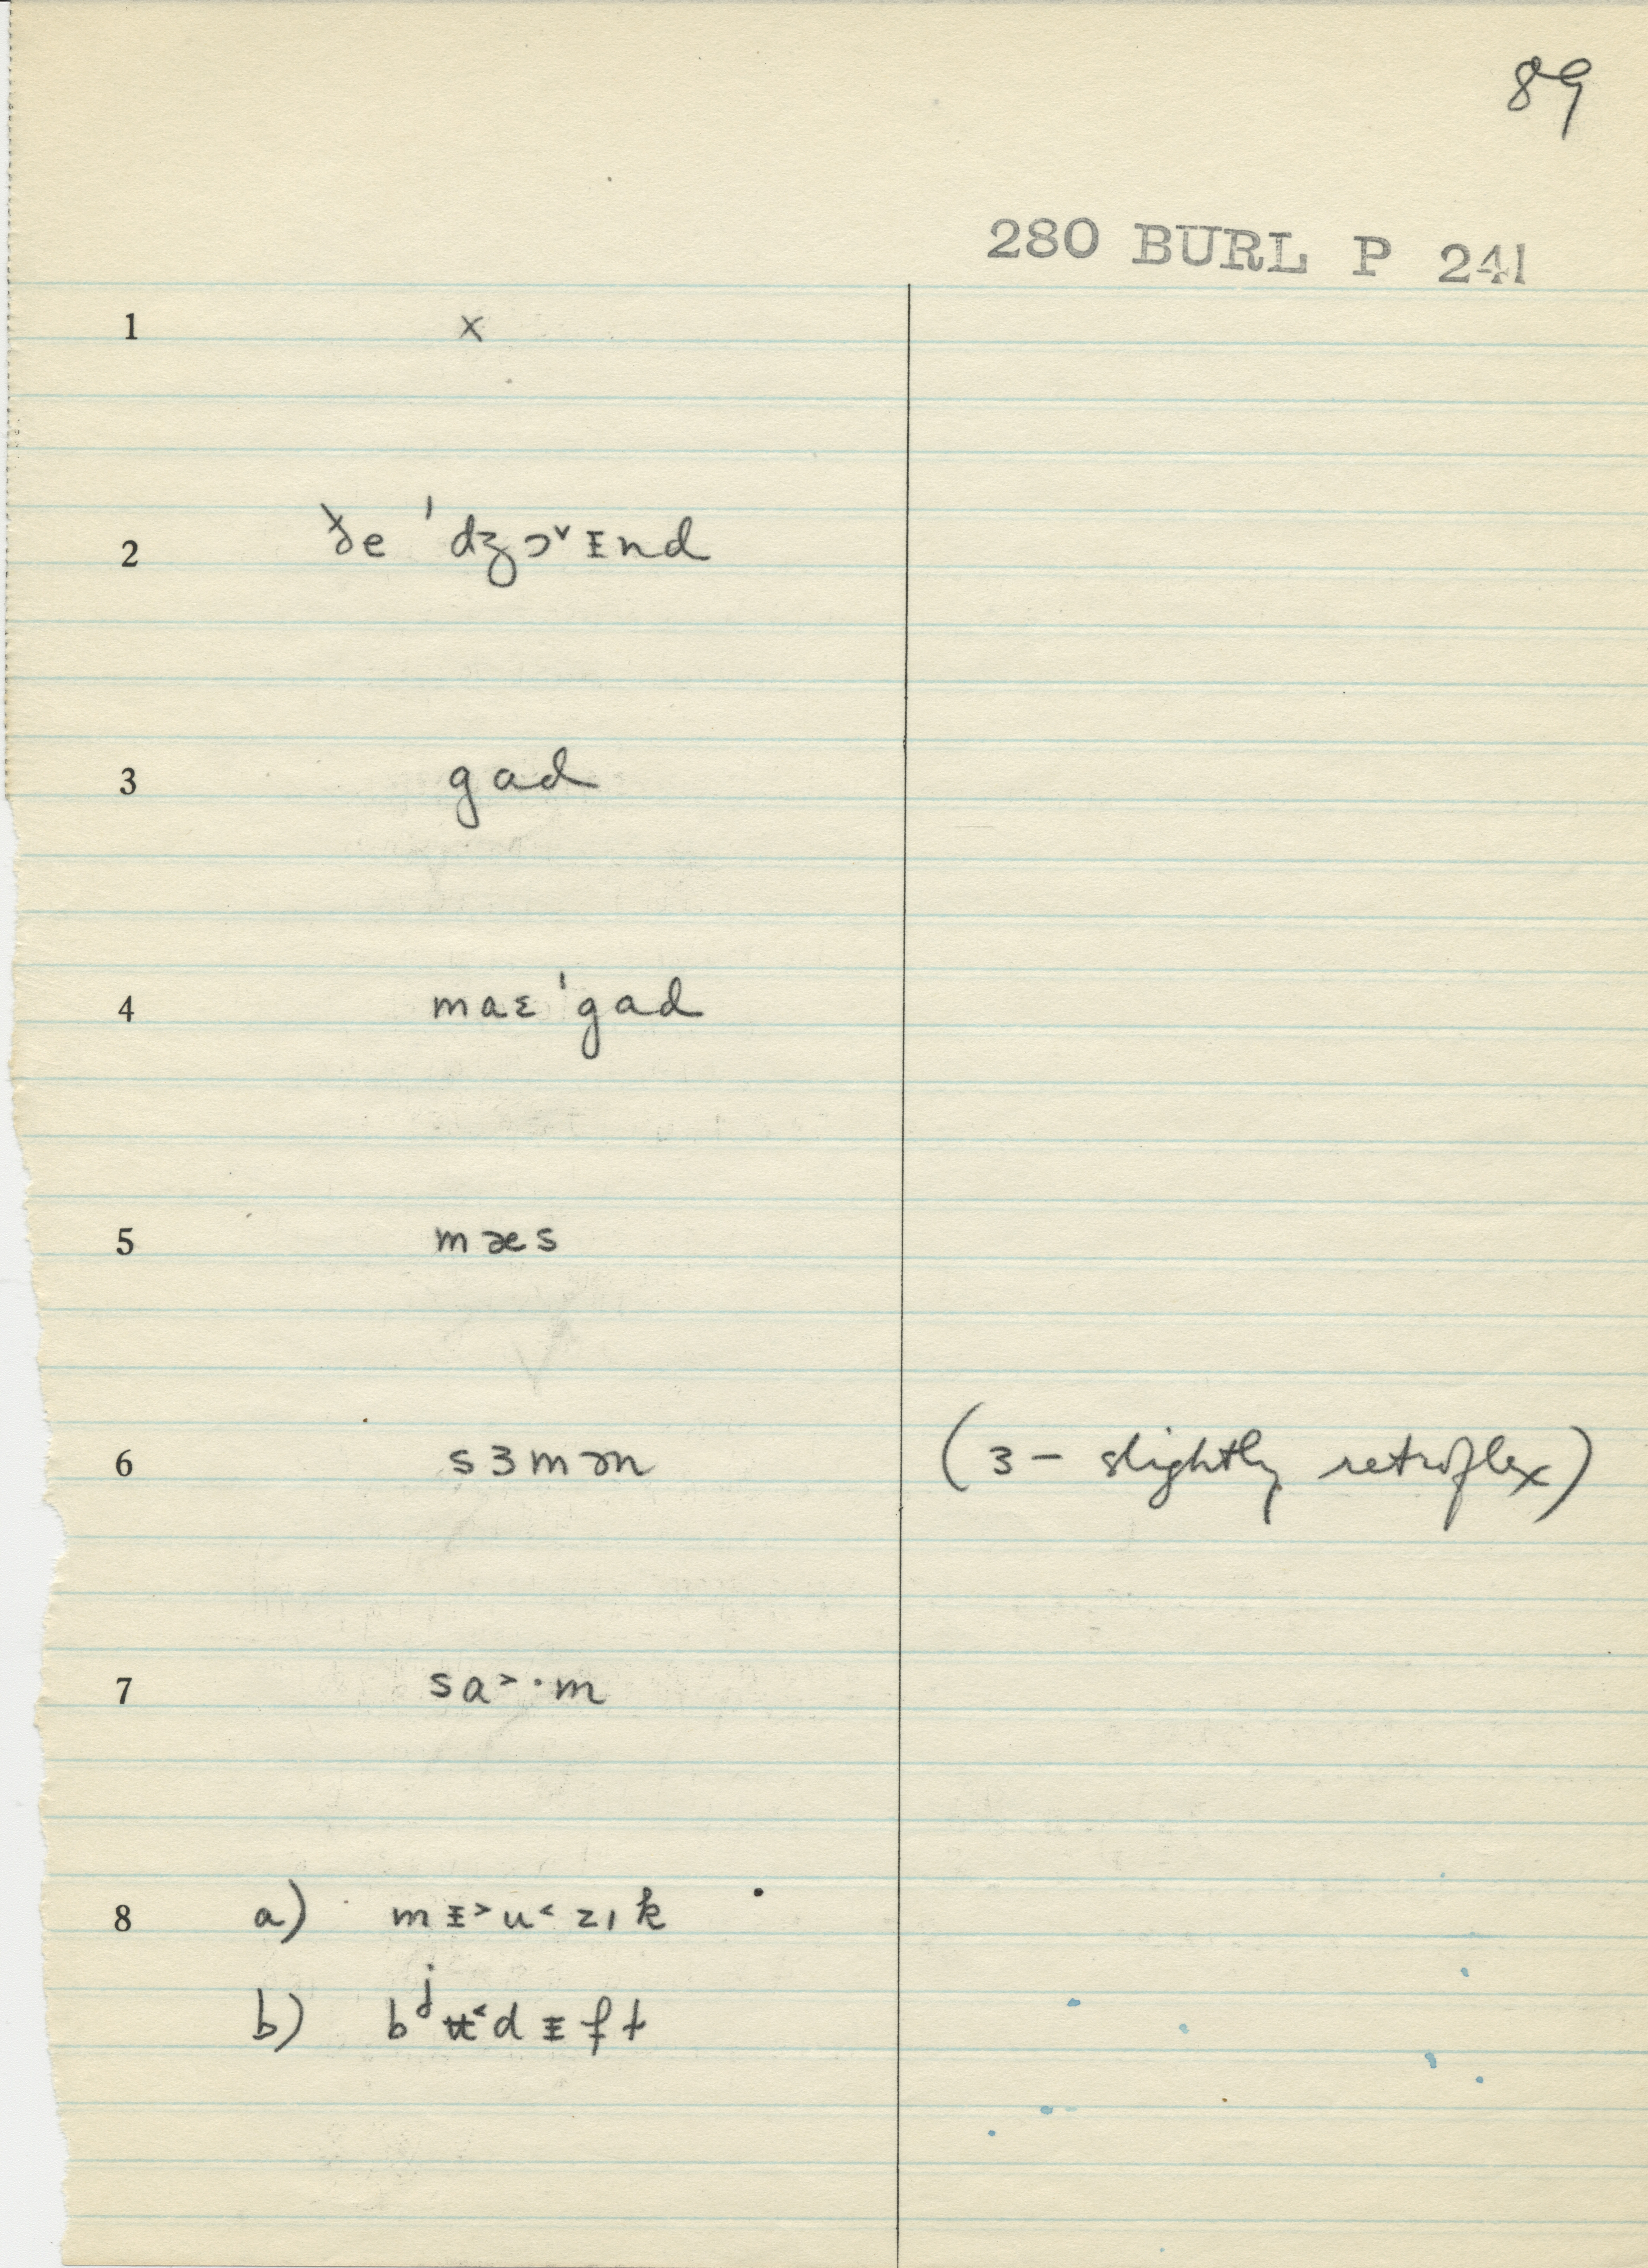 89
280 BURL P 241
1 x
2 ðe ˈdʒɔ˅ᵻnd
3 gad
4 maɛˈgad
5 mæs
6 sɜmən (ɜ – slightly retroflex)
7 sa˃·m
8 a) mᵻ˃u˂zık
b) bʲʉ˂dᵻft